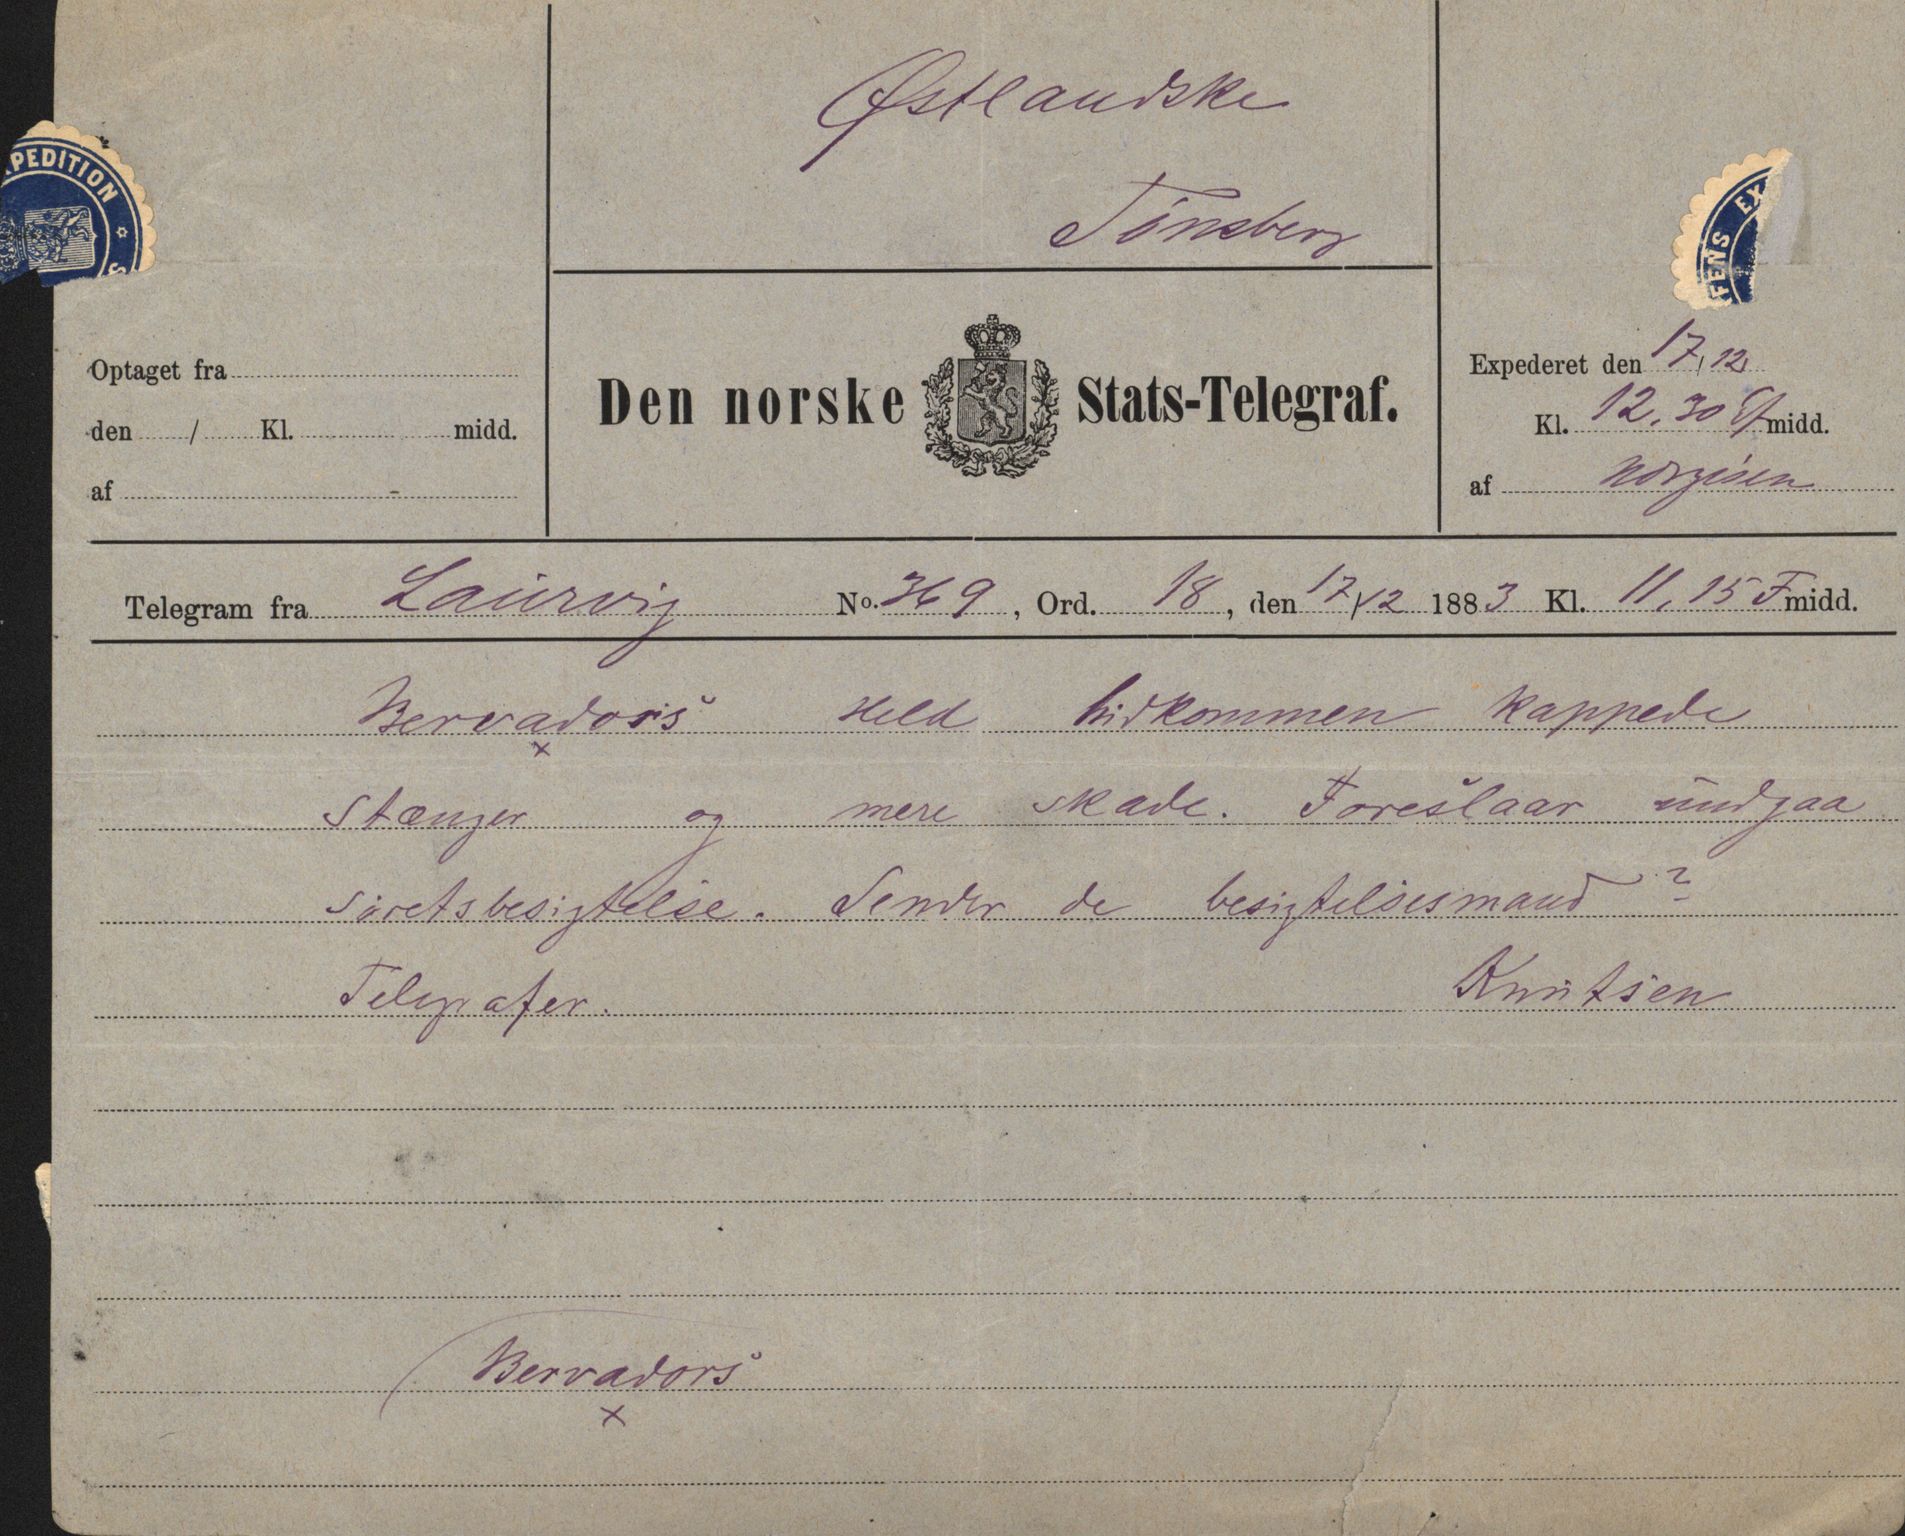 Østlandske
Tönsberg
PEDITION
S
FENS EX
Optaget fra
den / Kl. midd.
af
Den norske Stats-Telegraf.
Expederet den 17/12
Kl. 12.30 Ef midd.
af
Telegram fra Laurvig No. 369, Ord. 18, den 17/12 1883 Kl. 11,15 F midd.
Bervadors Held hidkommen kappede
stænger og mere skade. Foreslaar undgaa
söretsbesigtelse. Sender de besigtelsesmand?
Telegrafer. Knutsen
Bervadors
x